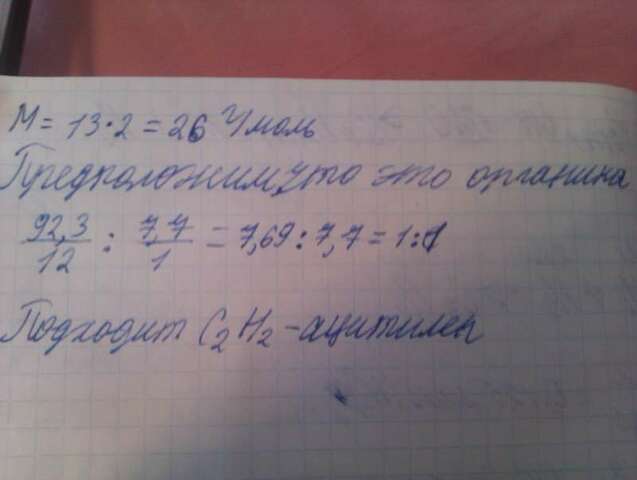 M = 13·2 = 26 г/моль
Предположим что это органика
92,3/12 : 7,7/1 = 7,69 : 7,7 = 1:1
Подходит C₂H₂ - ацитилен